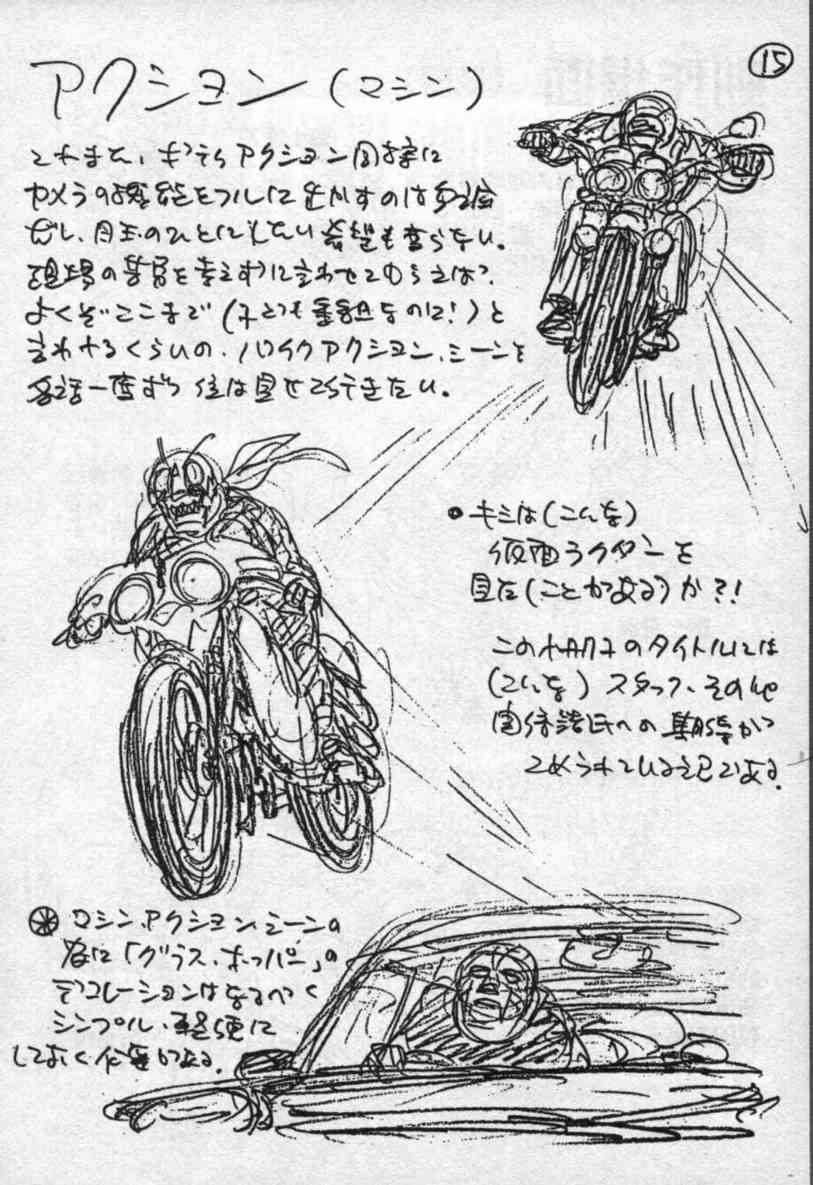 15
アクション（マシン）
これまた、ボディアクション同様に
カメラの機能をフルに生かすのは勿論
だし、目玉のひとにしたい希望も変らない。
現場の苦労を考えずに言わせてもらえば？
よくぞここまで（子ども番組なのに！）と
言わせるくらいの、バイクアクション、シーンを
各話一度ずつ位は見せて行きたい。
• キミは（こんな）
仮面ライダーを
見た（ことがある）か？！
このれ冊子のタイトルには
（こんな）スタッフ、その他
関係諸氏への期待が
こめられているのである。
✳ マシン、アクション、シーンの
為に「グラス、ホッパー」の
デコレーションはなるべく
シンプル、軽便に
しておく必要がある。